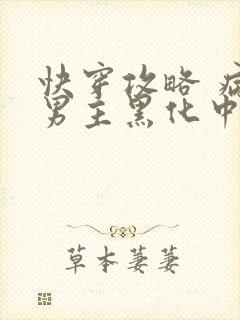 快穿攻略 病
男主黑化中
草本萋萋